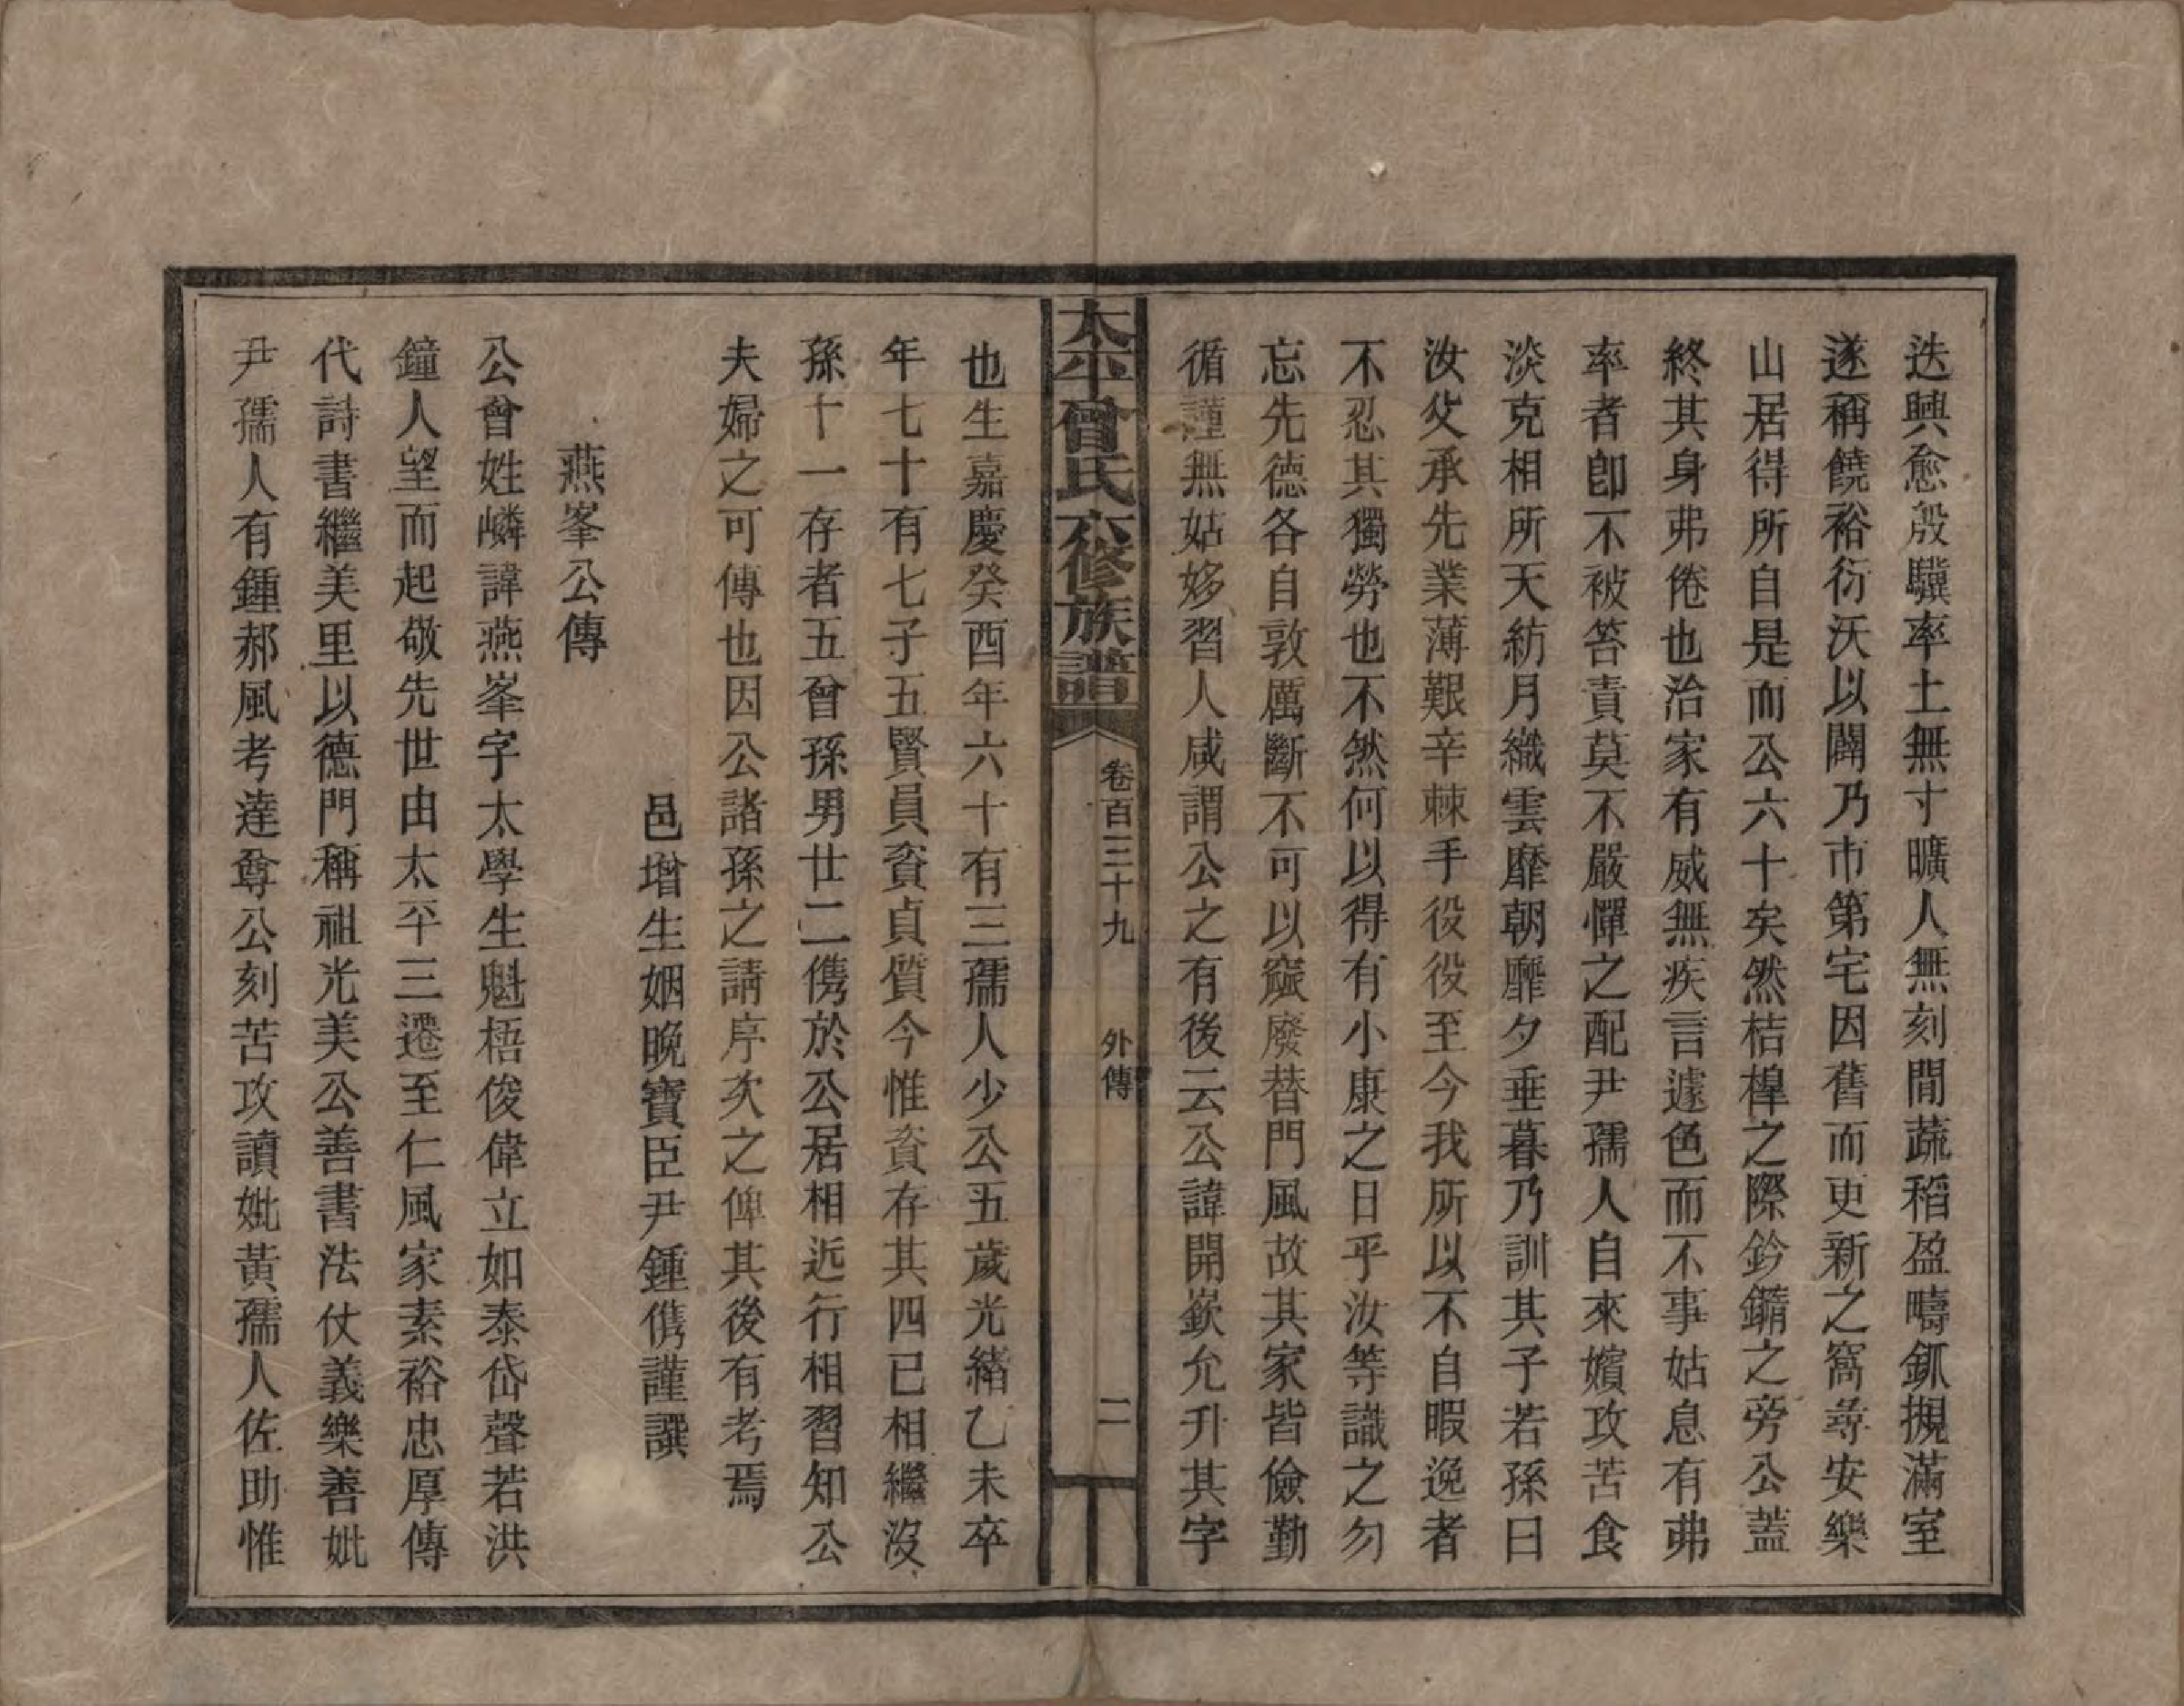 迭興愈殷驥率土無寸曠人無刻閒蔬稻盈疇釽摫滿室
遂稱饒裕衍沃以闢乃市第宅因舊而更新之窩尋安樂
山居得所自是而公六十矣然桔槹之際鈐鑼之旁公蓋
終其身弗倦也治家有威無疾言遽色而不事姑息有弗
率者卽不被笞責莫不嚴憚之配尹孺人自來嬪攻苦食
淡克相所天紡月織雲靡朝靡夕垂暮乃訓其子若孫曰
汝父承先業薄艱辛棘手役役至今我所以不自暇逸者
不忍其獨勞也不然何以得有小康之日乎汝等識之勿
忘先德各自敦厲斷不可以窳廢替門風故其家皆儉勤
循謹無姑姼習人咸謂公之有後云公諱開嶔允升其字
太平曾氏六修族譜
卷百三十九
外傳
二
也生嘉慶癸酉年六十有三孺人少公五歲光緒乙未卒
年七十有七子五賢員貧貞質今惟貧存其四已相繼沒
孫十一存者五曾孫男廿二儁於公居相近行相習知公
夫婦之可傳也因公諸孫之請序次之俾其後有考焉
邑增生姻晚寶臣尹鍾儁謹譔
燕峯公傳
公曾姓嶙諱燕峯字太學生魁梧俊偉立如泰岱聲若洪
鐘人望而起敬先世由太平三遷至仁風家素裕忠厚傳
代詩書繼美里以德門稱祖光美公善書法仗義樂善妣
尹孺人有鍾郝風考達尊公刻苦攻讀妣黃孺人佐助惟